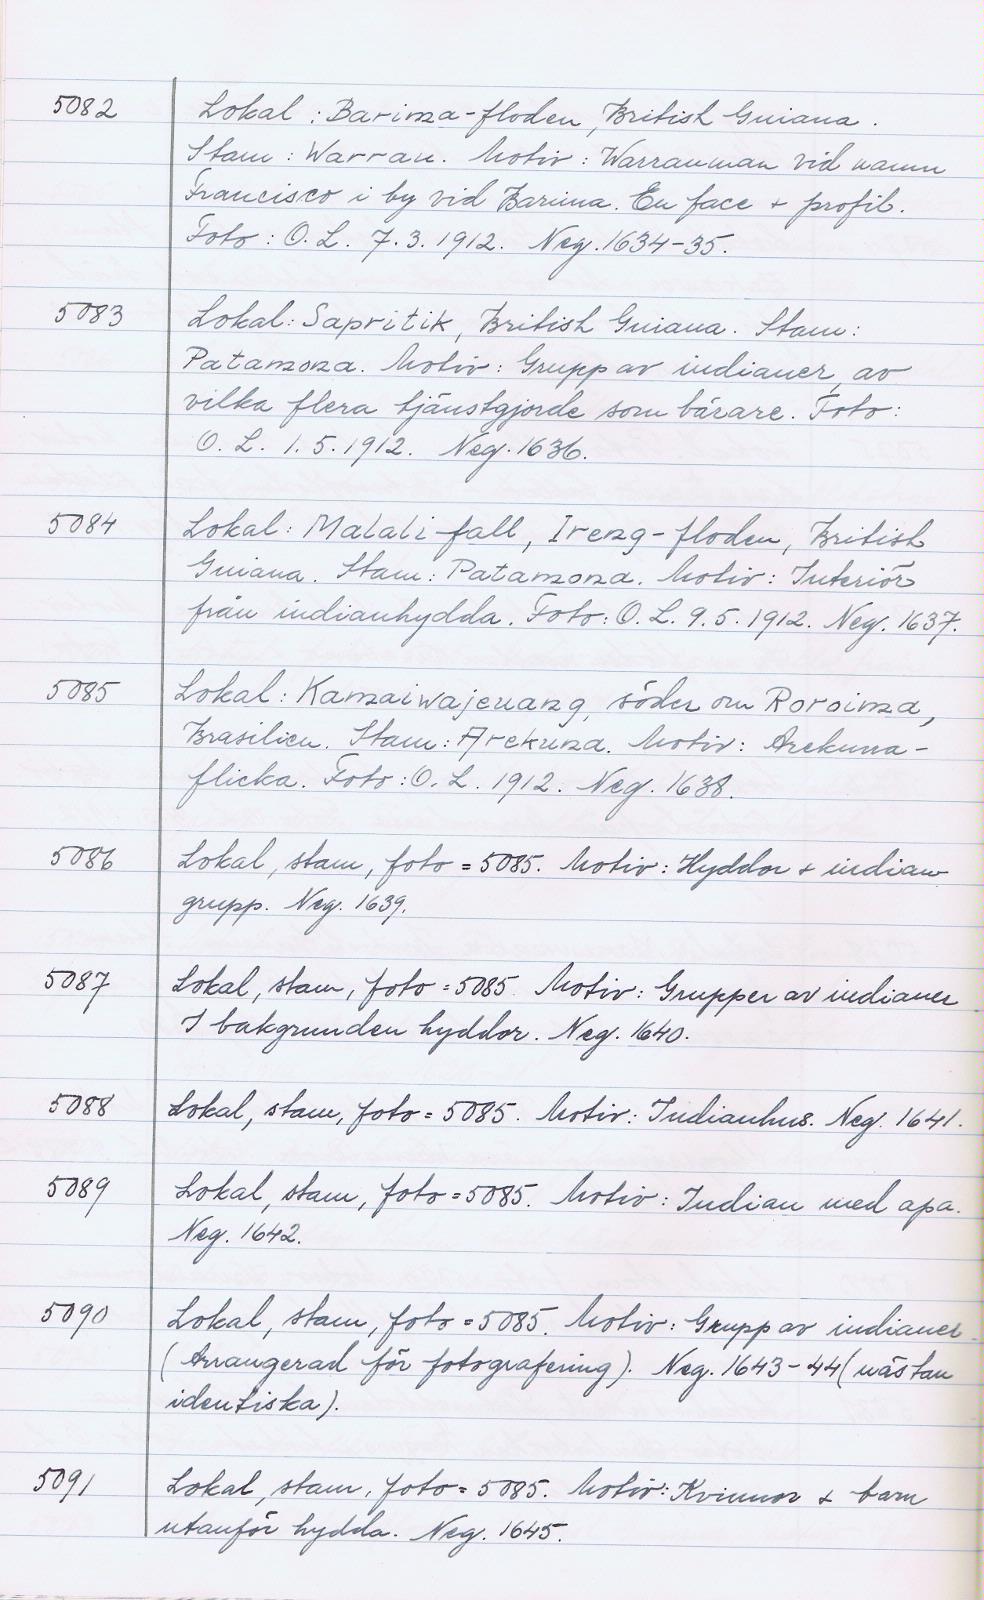 5082 Lokal : Barima-floden, British Guiana.
Stam : Warrau. Motiv : Warrauman vid namn
Francisco i by vid Barima. En face + profil.
Foto : O. L. 7.3.1912. Neg. 1634-35.
5083 Lokal: Sapritik, British Guiana. Stam:
Patamona. Motiv: Grupp av indianer, av
vilka flera tjänstgjorde som bärare. Foto:
O. L. 1.5.1912. Neg. 1636.
5084 Lokal: Malali-fall, Ireng-floden, British
Guiana. Stam: Patamona. Motiv: Interiör
från indianhydda. Foto: O. L. 9.5.1912. Neg. 1637.
5085 Lokal: Kamaiwajenang, söder om Roroima,
Brasilien. Stam: Arekuna. Motiv: Arekuna-
flicka. Foto: O. L. 1912. Neg. 1638.
5086 Lokal, stam, foto = 5085. Motiv: Hyddor + indian-
grupp. Neg. 1639.
5087 Lokal, stam, foto = 5085. Motiv: Grupper av indianer
I bakgrunden hyddor. Neg. 1640.
5088 Lokal, stam, foto = 5085. Motiv: Indianhus. Neg. 1641.
5089 Lokal, stam, foto = 5085. Motiv: Indian med apa.
Neg. 1642.
5090 Lokal, stam, foto = 5085. Motiv: Grupp av indianer
(Arrangerad för fotografering). Neg. 1643-44 (nästan
identiska).
5091 Lokal, stam, foto = 5085. Motiv: Kvinnor & barn
utanför hydda. Neg. 1645.